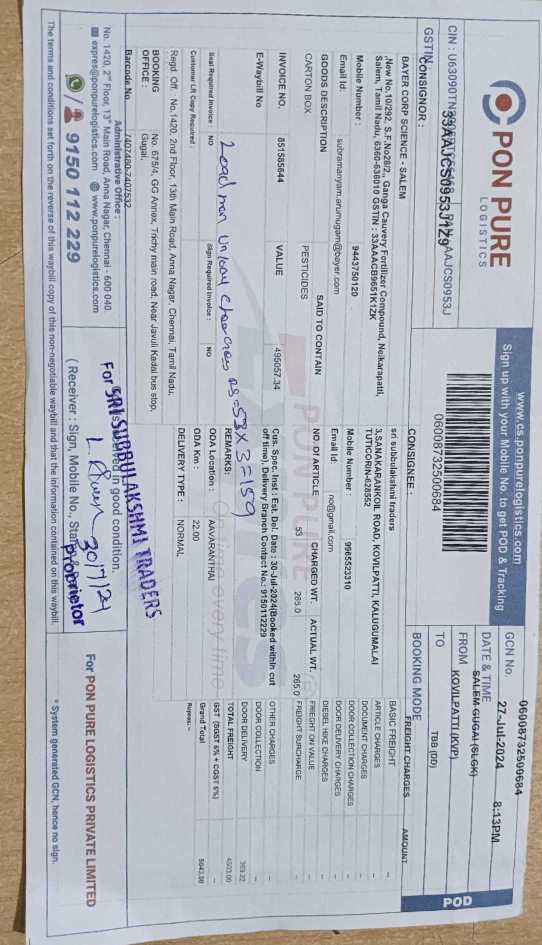 PON PURE
LOGISTICS
www.cs.ponpurelogistics.com
Sign up with your Mobile No. to get POD & Tracking
GCN No. 06008732500684
DATE & TIME 27-Jul-2024 8:13PM
FROM SALEM-GUGAI (SLGK)
TO KOVILPATTI (KVP)
BOOKING MODE TBB (DD)
POD
06008732500684
GSTIN: 33AAJCS0953J1Z9
CONSIGNOR :
BAYER CORP SCIENCE - SALEM
,New No.10/292, S.F.No28/2,, Ganga Cauvery Fortilizer Compound, Neikarapatti,
Salem, Tamil Nadu, 6360-636010 GSTIN : 33AAACB9651K1ZK
Mobile Number : 9443750120
Email Id: subramanyam.arumugam@bayer.com
CONSIGNEE:
sri subbulakshmi traders
3,SANAKARANKOIL ROAD, KOVILPATTI, KALUGUMALAI
TUTICORIN-628552
Mobile Number : 9965523310
Email Id: no@gmail.com
GOODS DESCRIPTION SAID TO CONTAIN NO. OF ARTICLE CHARGED WT. ACTUAL WT.
CARTON BOX PESTICIDES 53 265.0 265.0
INVOICE NO. 851585644 VALUE 495057.34
E-Waybill No
Cus. Spec. Inst : Est. Dal. Date : 30-Jul-2024(Booked within cut
off time), Delivery Branch Contact No.: 9150112229
Loadman Unload charges Rs=53X3=159
REMARKS:
Seal Required Invoice : NO Sign Required Invoice : NO
ODA Location : AAVARANTHAI
Customer LR Copy Required :
ODA Km : 22.00
DELIVERY TYPE : NORMAL
Regd. Off. : No.1420, 2nd Floor, 13th Main Road, Anna Nagar, Chennai, Tamil Nadu.
BOOKING OFFICE : No. 675/4, GG Annex, Trichy main road, Near Javuli Kadai bus stop,
Gugai,
Barcode No. 7407480-7407532
FREIGHT CHARGES AMOUNT
BASIC FREIGHT -
ARTICLE CHARGES -
DOCUMENT CHARGES -
DOOR COLLECTION CHARGES -
DOOR DELIVERY CHARGES -
DIESEL HIKE CHARGES -
FREIGHT ON VALUE -
FREIGHT SURCHARGE -
OTHER CHARGES -
DOOR COLLECTION -
DOOR DELIVERY
TOTAL FREIGHT
GST (SGST 6% + CGST 6%) -
Grand Total
Rupees: -
Administrative Office :
No. 1420, 2nd Floor, 13th Main Road, Anna Nagar, Chennai - 600 040.
expres@ponpurelogistics.com www.ponpurelogistics.com
9150 112 229
Received in good condition.
For SRI SUBBULAKSHMI TRADERS
30/7/24
Proprietor
( Receiver : Sign, Mobile No.,
For PON PURE LOGISTICS PRIVATE LIMITED
The terms and conditions set forth on the reverse of this waybill copy of this non-negotiable waybill and that the information contained on this waybill.
* System generated GCN, hence no sign.